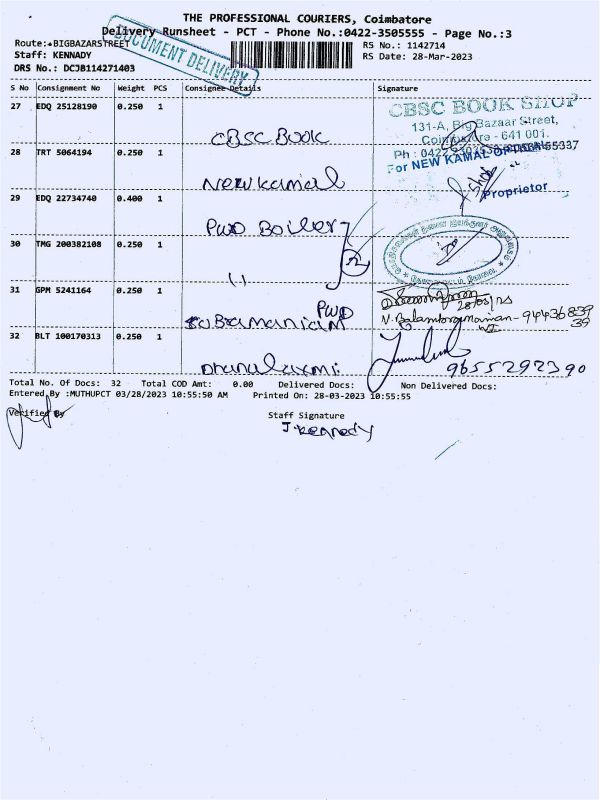 THE PROFESSIONAL COURIERS, Coimbatore
Delivery Runsheet - PCT - Phone No.:0422-3505555 - Page No.:3
Route:*BIGBAZARSTREET
Staff: KENNADY
DRS No.: DCJB114271403
DOCUMENT DELIVERY
RS No.: 1142714
RS Date: 28-Mar-2023
S No Consignment No Weight PCS Consignee Details Signature
27 EDQ 25128190 0.250 1
CBSC Book
CBSC BOOK SHOP
131-A, Big Bazaar Street,
Coimbatore - 641 001.
28 TRT 5064194 0.250 1
New kamal
For NEW KAMAL OPTICAL
Proprietor
29 EDQ 22734740 0.400 1
PWD Boiler
30 TMG 200382108 0.250 1
31 GPM 5241164 0.250 1
PWD
Subramaniam
28/03/23
32 BLT 100170313 0.250 1
Dhanalaxmi
9655292390
Total No. Of Docs: 32 Total COD Amt: 0.00 Delivered Docs: Non Delivered Docs:
Entered By :MUTHUPCT 03/28/2023 10:55:50 AM Printed On: 28-03-2023 10:55:55
Verified By
Staff Signature
J. Kennedy